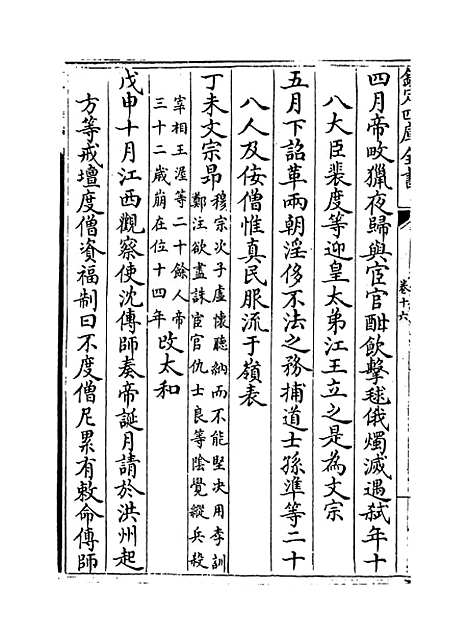 欽定四庫全書
卷十六
四月帝畋獵夜歸與宦官酣飲擊毬俄燭滅遇弑年十
八大臣裴度等迎皇太弟江王立之是為文宗
五月下詔革兩朝淫侈不法之務捕道士孫準等二十
八人及佞僧惟真民服流于嶺表
丁未文宗昂
穆宗次子虚懷聽納而不能堅决用李訓
鄭注欲盡誅宦官仇士良等陰覺縱兵殺
宰相王涯等二十餘人帝
三十二歳崩在位十四年
改太和
戊申十月江西觀察使沈傳師奏帝誕月請於洪州起
方等戒壇度僧資福制曰不度僧尼累有敕命傳師